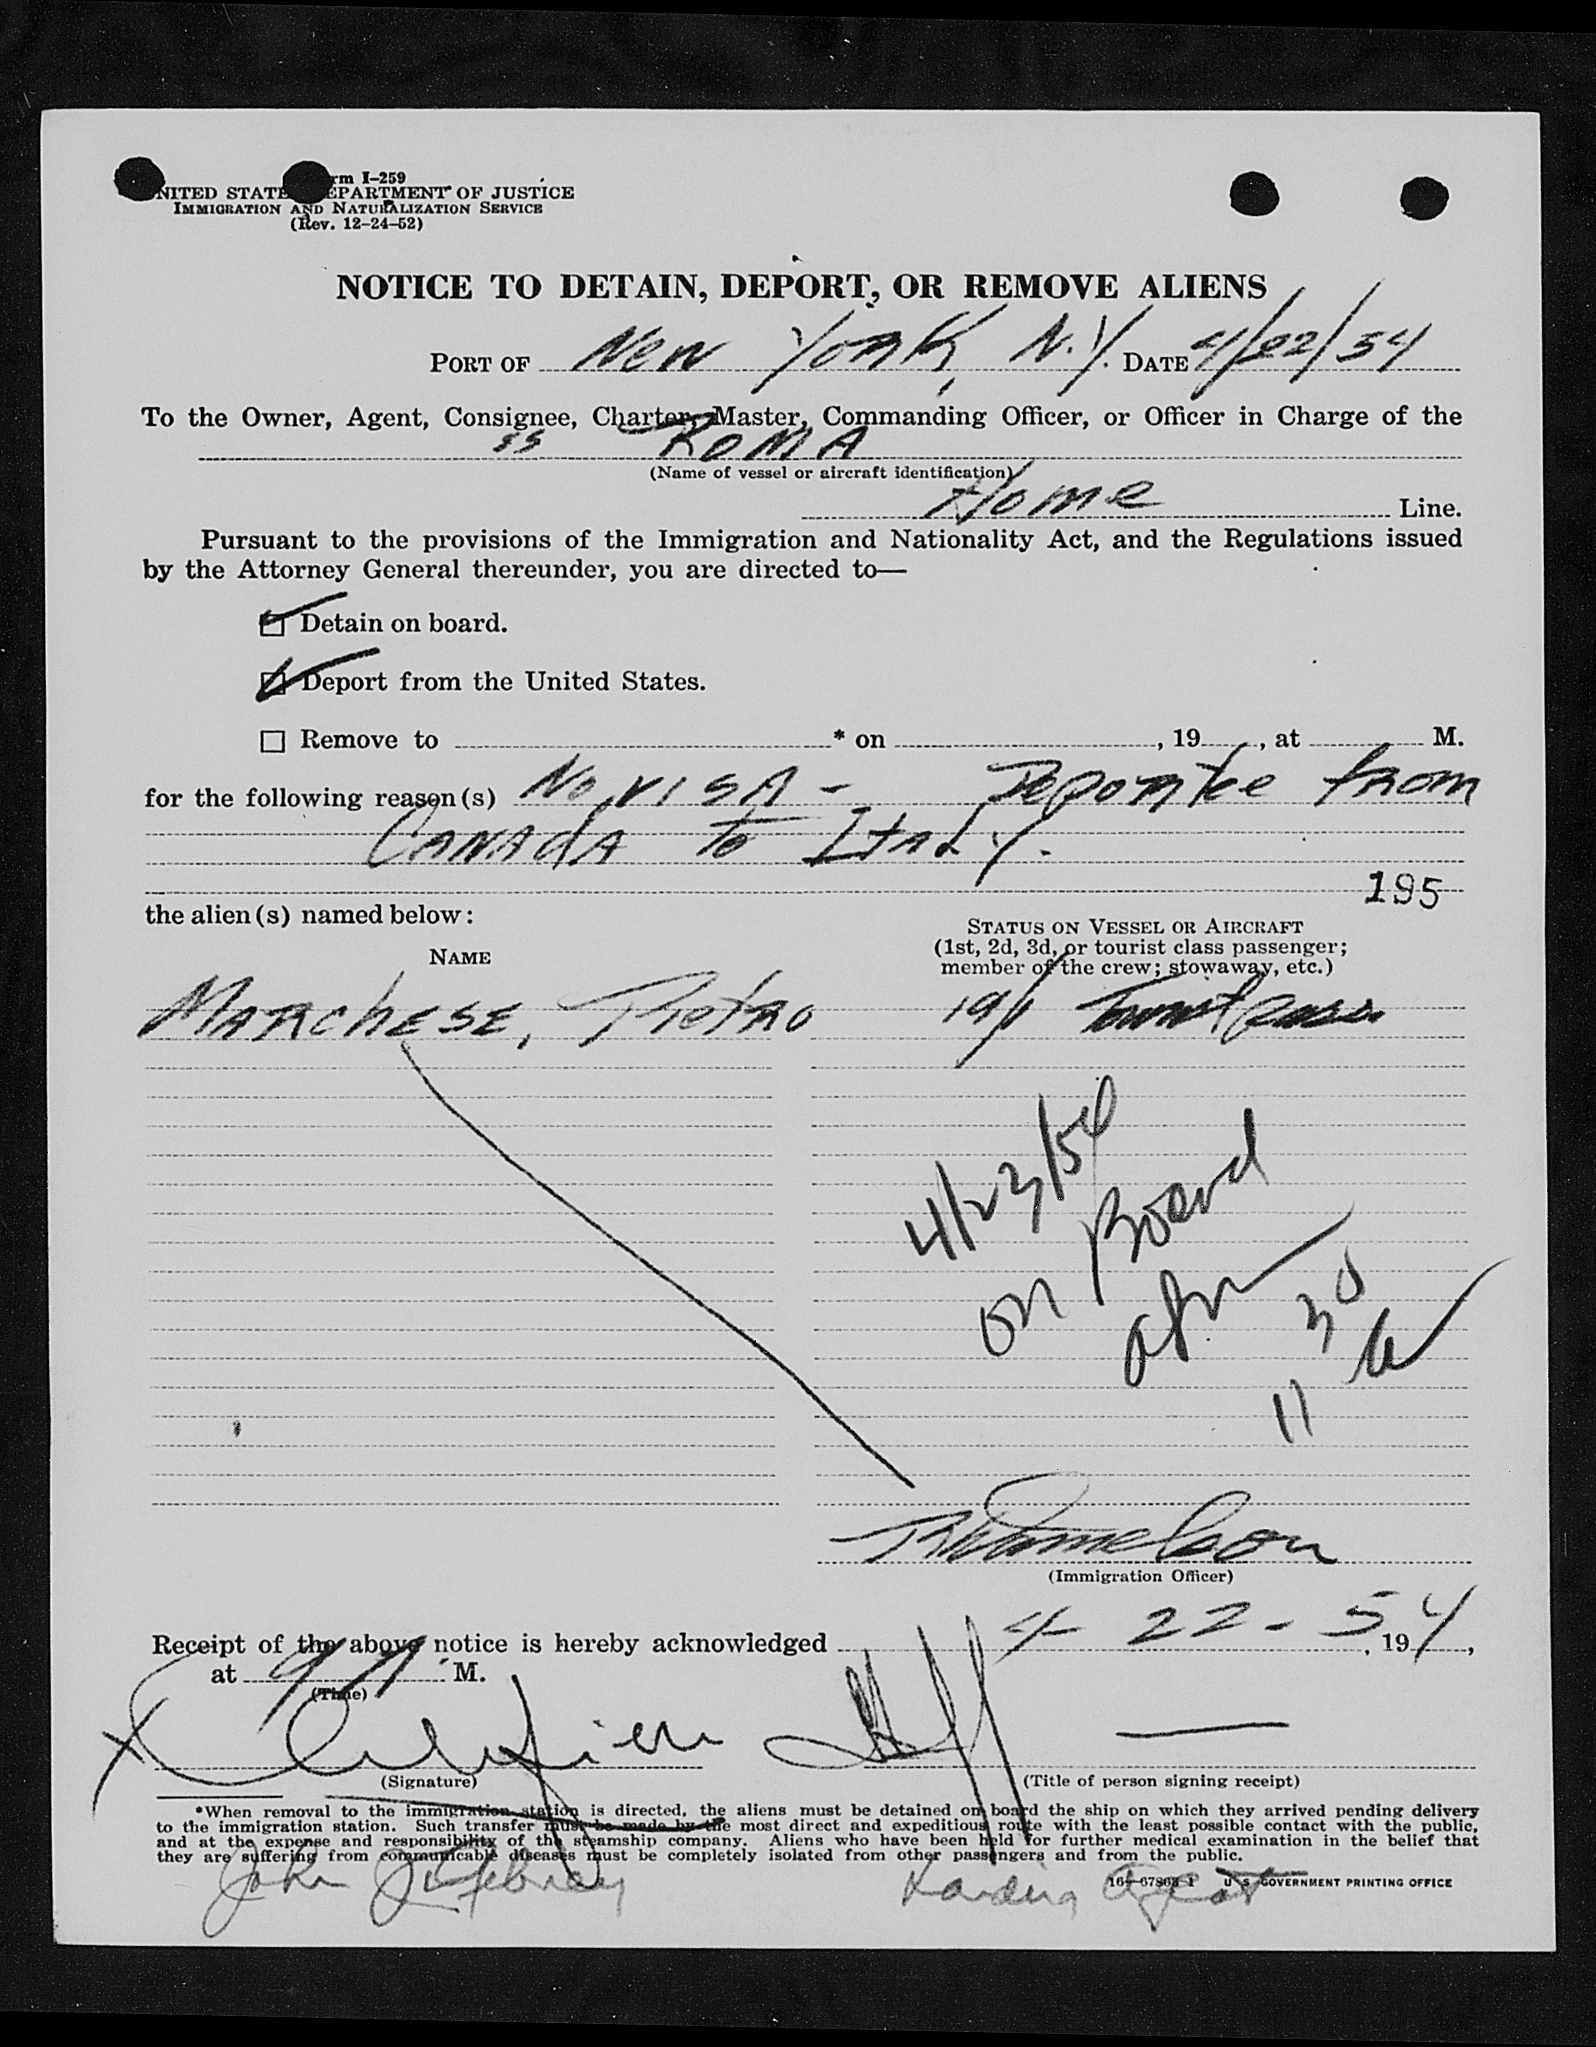 Form I-259
UNITED STATES DEPARTMENT OF JUSTICE
IMMIGRATION AND NATURALIZATION SERVICE
(Rev. 12-24-52)
NOTICE TO DETAIN, DEPORT, OR REMOVE ALIENS
PORT OF New York, N.Y. DATE 4/22/54
To the Owner, Agent, Consignee, Charter, Master, Commanding Officer, or Officer in Charge of the
SS ROMA
(Name of vessel or aircraft identification)
Home Line.
Pursuant to the provisions of the Immigration and Nationality Act, and the Regulations issued
by the Attorney General thereunder, you are directed to—
Detain on board.
Deport from the United States.
Remove to * on , 19 , at M.
for the following reason(s) No visa - Deportee from
Canada to Italy.
195
the alien(s) named below:
STATUS ON VESSEL OR AIRCRAFT
(1st, 2d, 3d, or tourist class passenger;
member of the crew; stowaway, etc.)
NAME
MARCHESE, Pietro 19/1 Tourist pass.
4/23/54
on Board
11 30
(Immigration Officer)
Receipt of the above notice is hereby acknowledged 4-22-54, 194,
at 9 M.
(Time)
(Signature) (Title of person signing receipt)
*When removal to the immigration station is directed, the aliens must be detained on board the ship on which they arrived pending delivery
to the immigration station. Such transfer must be made by the most direct and expeditious route with the least possible contact with the public,
and at the expense and responsibility of the steamship company. Aliens who have been held for further medical examination in the belief that
they are suffering from communicable diseases must be completely isolated from other passengers and from the public.
John Agent
16—67868-1 U S GOVERNMENT PRINTING OFFICE